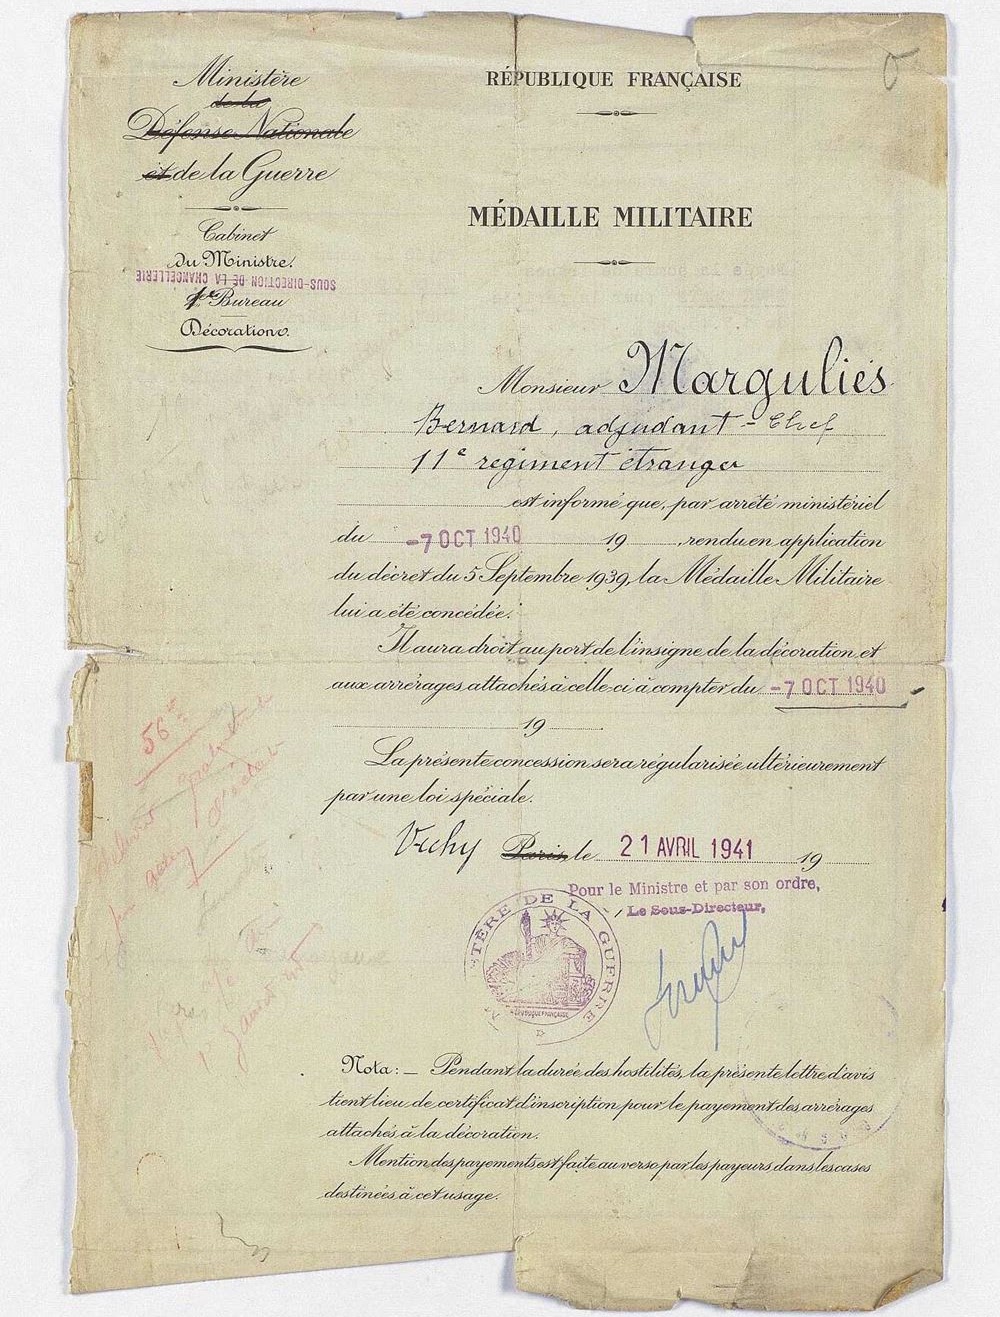 Ministère
de la
Défense Nationale
et de la Guerre
Cabinet
du Ministre.
SOUS-DIRECTION DE LA CHANCELLERIE
1er Bureau
Décorations.
RÉPUBLIQUE FRANÇAISE
MÉDAILLE MILITAIRE
Monsieur Marguliés
Bernard, adjudant-Chef
11e régiment étranger
est informé que, par arrêté ministériel
du -7 OCT 1940 19 , rendu en application
du décret du 5 Septembre 1939, la Médaille Militaire
lui a été concédée.
Il aura droit au port de l'insigne de la décoration et
aux arrérages attachés à celle-ci à compter du -7 OCT 1940
19
La présente concession sera régularisée ultérieurement
par une loi spéciale.
Vichy Paris le 21 AVRIL 1941 19
Pour le Ministre et par son ordre,
Le Sous-Directeur,
MINISTÈRE DE LA GUERRE
RÉPUBLIQUE FRANÇAISE
56
Nota: — Pendant la durée des hostilités, la présente lettre d'avis
tient lieu de certificat d'inscription pour le payement des arrérages
attachés à la décoration.
Mention des payements est faite au verso par les payeurs dans les cases
destinées à cet usage.